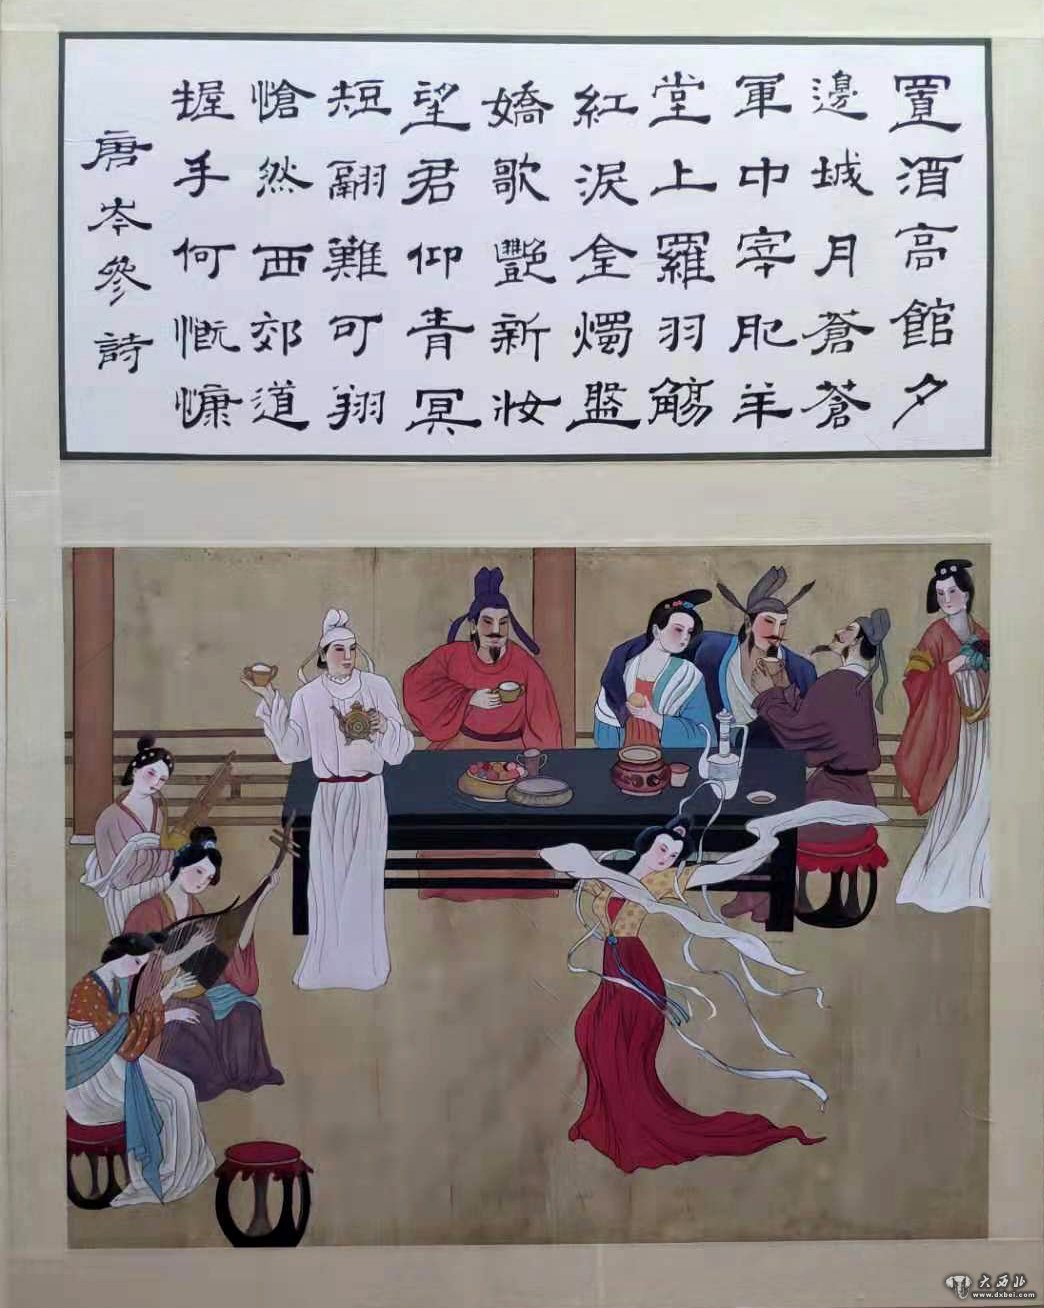 置酒高館夕
邊城月蒼蒼
軍中宰肥羊
堂上羅羽觴
紅淚金燭盤
嬌歌豔新妝
望君仰青冥
短翮難可翔
愴然西郊道
握手何慨慷
唐岑參詩
大西北
www.dxbei.com